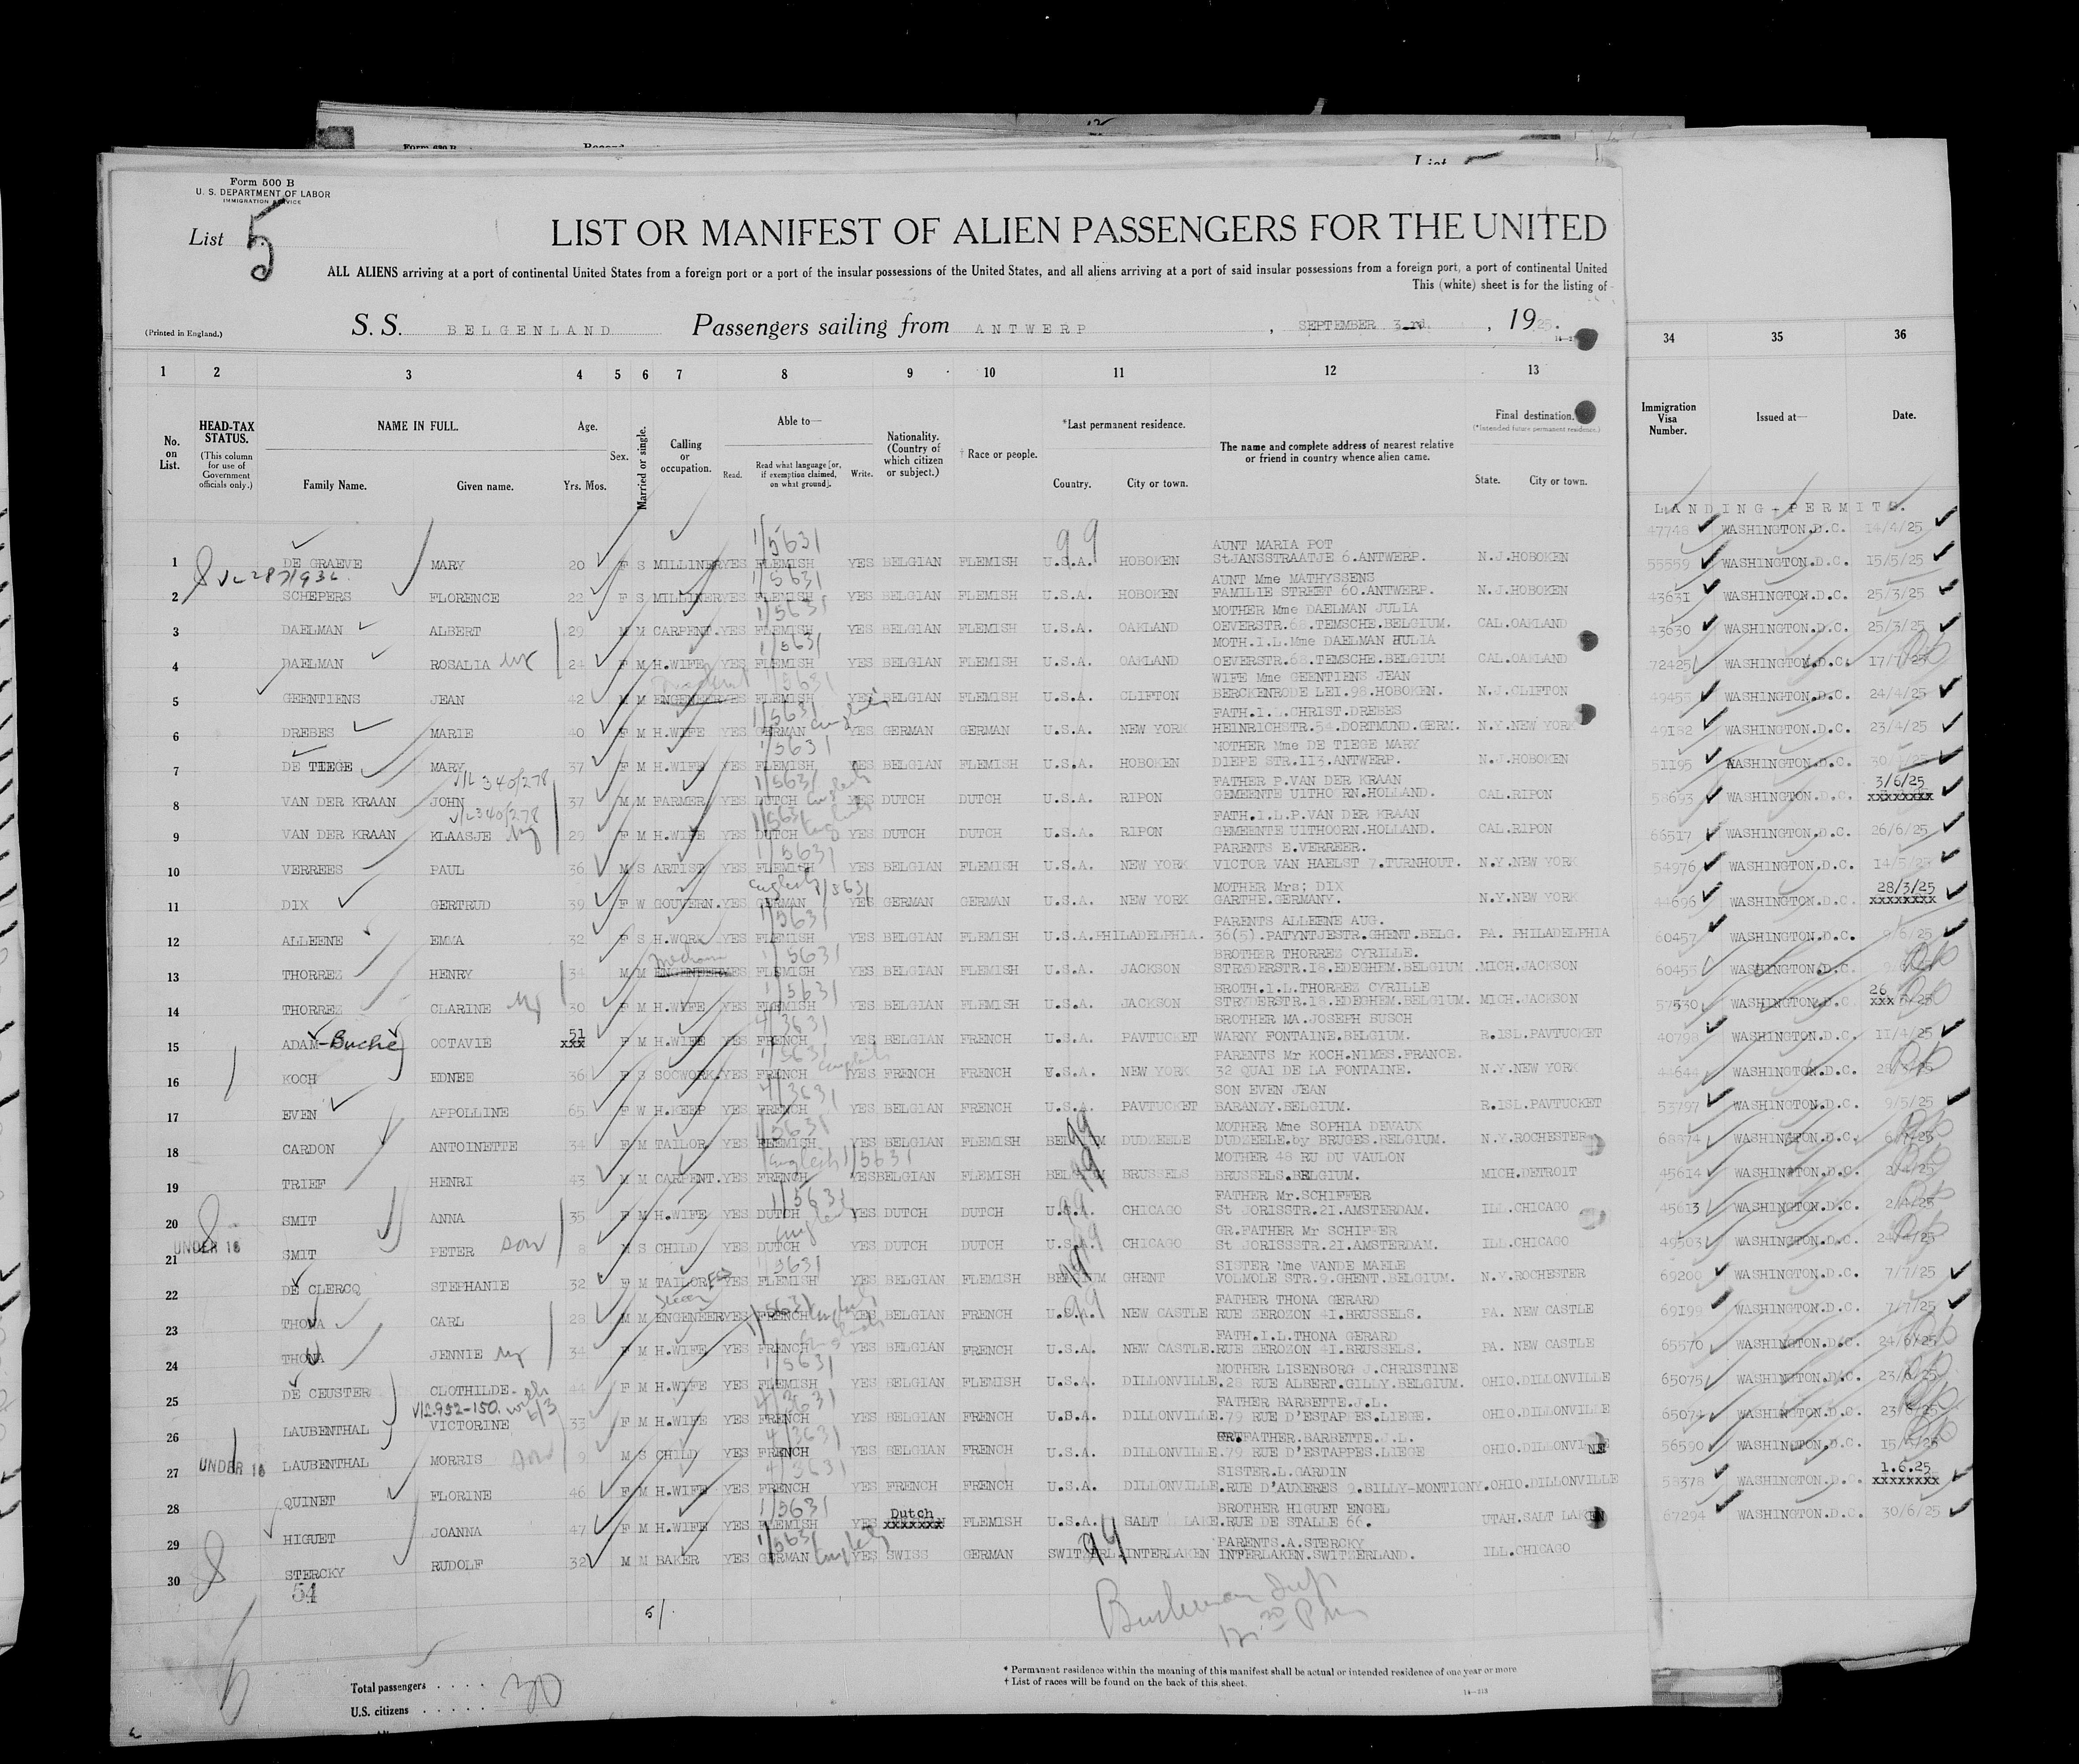 Form 500 B
U. S. DEPARTMENT OF LABOR
IMMIGRATION SERVICE
List 5
LIST OR MANIFEST OF ALIEN PASSENGERS FOR THE UNITED
ALL ALIENS arriving at a port of continental United States from a foreign port or a port of the insular possessions of the United States, and all aliens arriving at a port of said insular possessions from a foreign port, a port of continental United
This (white) sheet is for the listing of
(Printed in England.) S. S. BELGENLAND Passengers sailing from ANTWERP, SEPTEMBER 3rd, 1925.
1 2 3 4 5 6 7 8 9 10 11 12 13 34 35 36
No. on List. HEAD-TAX STATUS. (This column for use of Government officials only.) NAME IN FULL. Family Name. Given name. Age. Yrs. Mos. Sex. Married or single. Calling or occupation. Able to— Read. Read what language [or, if exemption claimed, on what ground]. Write. Nationality. (Country of which citizen or subject.) † Race or people. *Last permanent residence. Country. City or town. The name and complete address of nearest relative or friend in country whence alien came. Final destination. (*Intended future permanent residence.) State. City or town. Immigration Visa Number. Issued at— Date.
LANDING-PERMITS.
47748 WASHINGTON.D.C. 14/4/25
AUNT MARIA POT
1 DE GRAEVE MARY 20 F S MILLINER YES FLEMISH YES BELGIAN FLEMISH U.S.A. HOBOKEN StJANSSTRAATJE 6.ANTWERP. N.J.HOBOKEN 55559 WASHINGTON.D.C. 15/5/25
AUNT Mme MATHYSSENS
2 SCHEPERS FLORENCE 22 F S MILLINER YES FLEMISH YES BELGIAN FLEMISH U.S.A. HOBOKEN FAMILIE STREET 60.ANTWERP. N.J.HOBOKEN 43631 WASHINGTON.D.C. 25/3/25
MOTHER Mme DAELMAN JULIA
3 DAELMAN ALBERT 29 M M CARPENT. YES FLEMISH YES BELGIAN FLEMISH U.S.A. OAKLAND OEVERSTR.68.TEMSCHE.BELGIUM. CAL.OAKLAND 43630 WASHINGTON.D.C. 25/3/25
MOTH.I.L.Mme DAELMAN HULIA
4 DAELMAN ROSALIA 24 F M H.WIFE YES FLEMISH YES BELGIAN FLEMISH U.S.A. OAKLAND OEVERSTR.68.TEMSCHE.BELGIUM CAL.OAKLAND 72425 WASHINGTON.D.C. 17/7/25
WIFE Mme GEENTIENS JEAN
5 GEENTIENS JEAN 42 M M ENGENEER YES FLEMISH YES BELGIAN FLEMISH U.S.A. CLIFTON BERCKENRODE LEI.98.HOBOKEN. N.J.CLIFTON 49455 WASHINGTON.D.C. 24/4/25
FATH.I.L.CHRIST.DREBES
6 DREBES MARIE 40 F M H.WIFE YES GERMAN English YES GERMAN GERMAN U.S.A. NEW YORK HEINRICHSTR.54.DORTMUND.GERM. N.Y.NEW YORK 49182 WASHINGTON.D.C. 23/4/25
MOTHER Mme DE TIEGE MARY
7 DE TIEGE MARY 37 F M H.WIFE YES FLEMISH YES BELGIAN FLEMISH U.S.A. HOBOKEN DIEPE STR.113.ANTWERP. N.J.HOBOKEN 51195 WASHINGTON.D.C.
FATHER P.VAN DER KRAAN 3/6/25
8 VAN DER KRAAN JOHN 37 M M FARMER YES DUTCH English YES DUTCH DUTCH U.S.A. RIPON GEMEENTE UITHOORN.HOLLAND. CAL.RIPON 58693 WASHINGTON.D.C. xxxxxxxx
FATH.I.L.P.VAN DER KRAAN
9 VAN DER KRAAN KLAASJE 29 F M H.WIFE YES DUTCH English YES DUTCH DUTCH U.S.A. RIPON GEMEENTE UITHOORN.HOLLAND. CAL.RIPON 66517 WASHINGTON.D.C. 26/6/25
PARENTS E.VERREER.
10 VERREES PAUL 36 M S ARTIST YES FLEMISH YES BELGIAN FLEMISH U.S.A. NEW YORK VICTOR VAN HAELST 7.TURNHOUT. N.Y.NEW YORK 54976 WASHINGTON.D.C. 14/5/25
MOTHER Mrs; DIX 28/3/25
11 DIX GERTRUD 39 F W GOUVERN. YES GERMAN English YES GERMAN GERMAN U.S.A. NEW YORK GARTHE.GERMANY. N.Y.NEW YORK 44696 WASHINGTON.D.C. xxxxxxxx
PARENTS ALLEENE AUG.
12 ALLEENE EMMA 32 F S H.WORK YES FLEMISH YES BELGIAN FLEMISH U.S.A. PHILADELPHIA. 36(5).PATYNTJESTR.GHENT.BELG. PA. PHILADELPHIA 60457 WASHINGTON.D.C. 9/6/25
BROTHER THORREZ CYRILLE.
13 THORREZ HENRY 34 M M ENGENEER YES FLEMISH YES BELGIAN FLEMISH U.S.A. JACKSON STRYDERSTR.18.EDEGHEM.BELGIUM. MICH.JACKSON 60455 WASHINGTON.D.C.
BROTH.I.L.THORREZ CYRILLE 26
14 THORREZ CLARINE 30 F M H.WIFE YES FLEMISH YES BELGIAN FLEMISH U.S.A. JACKSON STRYDERSTR.18.EDEGHEM.BELGIUM. MICH.JACKSON 57530 WASHINGTON.D.C. xxx
BROTHER MA.JOSEPH BUSCH
15 ADAM-Buche OCTAVIE 51 xxx F M H.WIFE YES FRENCH YES BELGIAN FRENCH U.S.A. PAVTUCKET WARNY FONTAINE.BELGIUM. R.ISL.PAVTUCKET 40798 WASHINGTON.D.C. 11/4/25
PARENTS Mr KOCH.NIMES.FRANCE.
16 KOCH EDNEE 36 F S SOCWORK. YES FRENCH English YES FRENCH FRENCH U.S.A. NEW YORK 32 QUAI DE LA FONTAINE. N.Y.NEW YORK 44644 WASHINGTON.D.C.
SON EVEN JEAN
17 EVEN APPOLLINE 65 F W H.KEEP YES FRENCH YES BELGIAN FRENCH U.S.A. PAVTUCKET BARANZY.BELGIUM. R.ISL.PAVTUCKET 53797 WASHINGTON.D.C. 9/5/25
MOTHER Mme SOPHIA DEVAUX
18 CARDON ANTOINETTE 34 F M TAILOR YES FLEMISH YES BELGIAN FLEMISH BELGIUM DUDZEELE DUDZEELE.by BRUGES.BELGIUM. N.Y.ROCHESTER 68874 WASHINGTON.D.C.
MOTHER 48 RU DU VAULON
19 TRIEF HENRI 43 M M CARPENT. YES FRENCH English YES BELGIAN FLEMISH BELGIUM BRUSSELS BRUSSELS.BELGIUM. MICH.DETROIT 45614 WASHINGTON.D.C. 2/4/25
FATHER Mr.SCHIFFER
20 SMIT ANNA 35 F M H.WIFE YES DUTCH YES DUTCH DUTCH U.S.A. CHICAGO St JORISSTR.21.AMSTERDAM. ILL.CHICAGO 45613 WASHINGTON.D.C. 2/4/25
UNDER 16 GR.FATHER Mr SCHIFFER
21 SMIT PETER son 8 M S CHILD YES DUTCH YES DUTCH DUTCH U.S.A. CHICAGO St JORISSSTR.21.AMSTERDAM. ILL.CHICAGO 49503 WASHINGTON.D.C.
SISTER Mme VANDE MAELE
22 DE CLERCQ STEPHANIE 32 F M TAILORESS YES FLEMISH YES BELGIAN FLEMISH BELGIUM GHENT VOLMOLE STR.9.GHENT.BELGIUM. N.Y.ROCHESTER 69200 WASHINGTON.D.C. 7/7/25
FATHER THONA GERARD
23 THONA CARL 28 M M ENGENEER YES FRENCH English YES BELGIAN FRENCH U.S.A. NEW CASTLE RUE ZEROZON 41.BRUSSELS. PA. NEW CASTLE 69199 WASHINGTON.D.C. 7/7/25
FATH.I.L.THONA GERARD
24 THONA JENNIE 34 F M H.WIFE YES FRENCH English YES BELGIAN FRENCH U.S.A. NEW CASTLE. RUE ZEROZON 41.BRUSSELS. PA. NEW CASTLE 65570 WASHINGTON.D.C. 24/6/25
MOTHER LISENBORG J.CHRISTINE
25 DE CEUSTER CLOTHILDE 44 F M H.WIFE YES FLEMISH YES BELGIAN FLEMISH U.S.A. DILLONVILLE. 28 RUE ALBERT.GILLY.BELGIUM. OHIO.DILLONVILLE 65075 WASHINGTON.D.C. 23/6/25
FATHER BARBETTE.J.L.
26 LAUBENTHAL VICTORINE 33 F M H.WIFE YES FRENCH YES BELGIAN FRENCH U.S.A. DILLONVILLE. 79 RUE D'ESTAPPES.LIEGE. OHIO.DILLONVILLE 65074 WASHINGTON.D.C. 23/6/25
UNDER 16 GR.FATHER.BARBETTE.J.L.
27 LAUBENTHAL MORRIS son 9 M S CHILD YES FRENCH YES BELGIAN FRENCH U.S.A. DILLONVILLE. 79 RUE D'ESTAPPES.LIEGE OHIO.DILLONVILLE 56590 WASHINGTON.D.C.
SISTER.L.GARDIN 1.6.25
28 QUINET FLORINE 46 F M H.WIFE YES FRENCH YES FRENCH FRENCH U.S.A. DILLONVILLE. RUE D'AUXERES 9.BILLY-MONTIGNY. OHIO.DILLONVILLE 58378 WASHINGTON.D.C. xxxxxxxx
Dutch BROTHER HIGUET ENGEL
29 HIGUET JOANNA 47 F M H.WIFE YES FLEMISH YES xxxxxxx FLEMISH U.S.A. SALT LAKE. RUE DE STALLE 66. UTAH.SALT LAKE 67294 WASHINGTON.D.C. 30/6/25
PARENTS.A.STERCKY
30 STERCKY RUDOLF 32 M M BAKER YES GERMAN English YES SWISS GERMAN SWITZERL. INTERLAKEN INTERLAKEN.SWITZERLAND. ILL.CHICAGO
54
5/.
* Permanent residence within the meaning of this manifest shall be actual or intended residence of one year or more.
† List of races will be found on the back of this sheet.
Total passengers . . . . . 30
U.S. citizens . . . . .